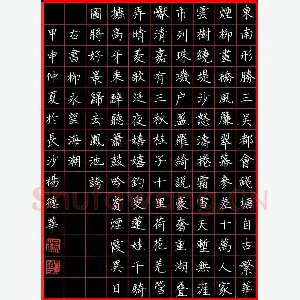 東南形勝三吳都會錢塘自古繁華
煙柳畫橋風簾翠幕參差十萬人家
雲樹繞堤沙怒濤捲霜雪天塹無涯
市列珠璣戶盈羅綺競豪奢重湖疊
巘清嘉有三秋桂子十里荷花羌管
弄晴菱歌泛夜嬉嬉釣叟蓮娃千騎
擁高牙乘醉聽簫鼓吟賞煙霞異日
圖將好景歸去鳳池誇
右書柳永望海潮
甲申仲夏於長沙楊德華